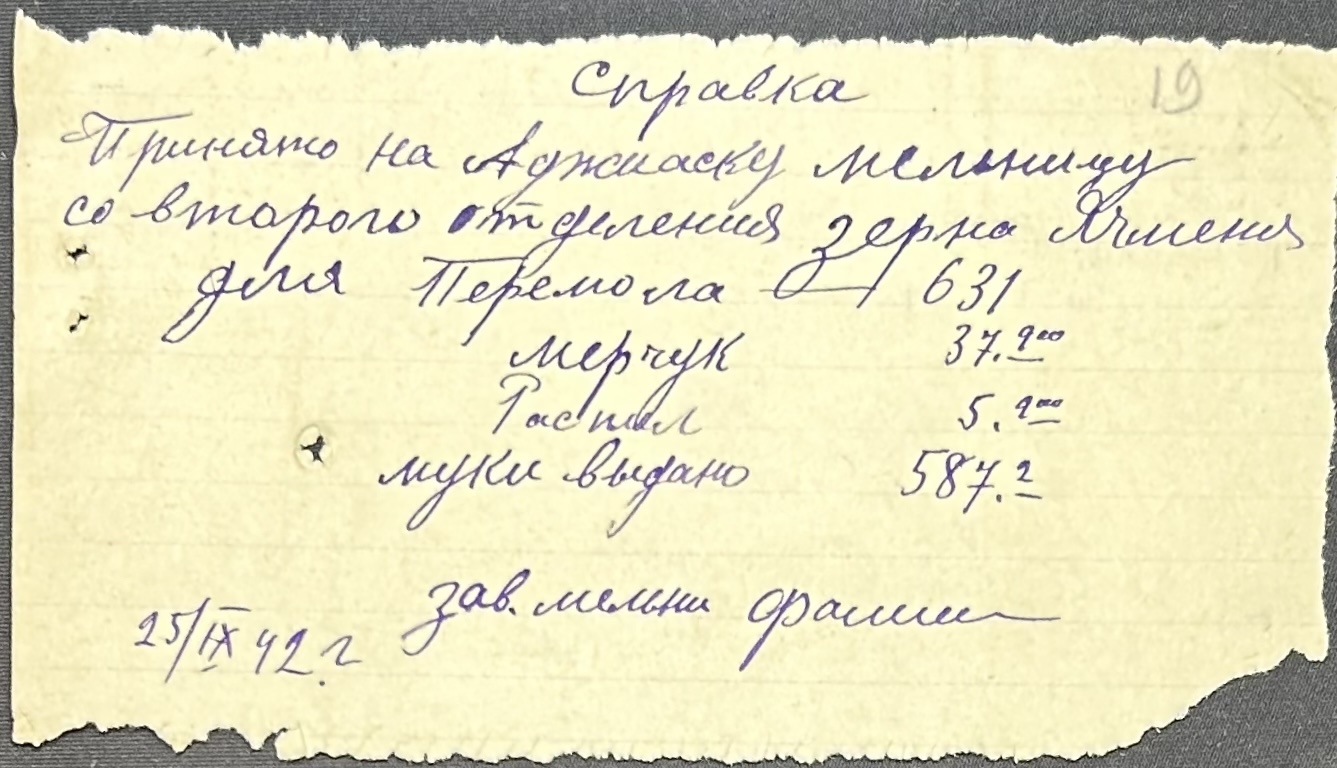 19
Справка
Принято на Аджиаску мельницу
со второго отделения зерна Ячменя
для Перемола — 631
мерчук 37.900
Распыл 5.900
муки выдано 587.2
зав. мельни
25/IX 42 г.